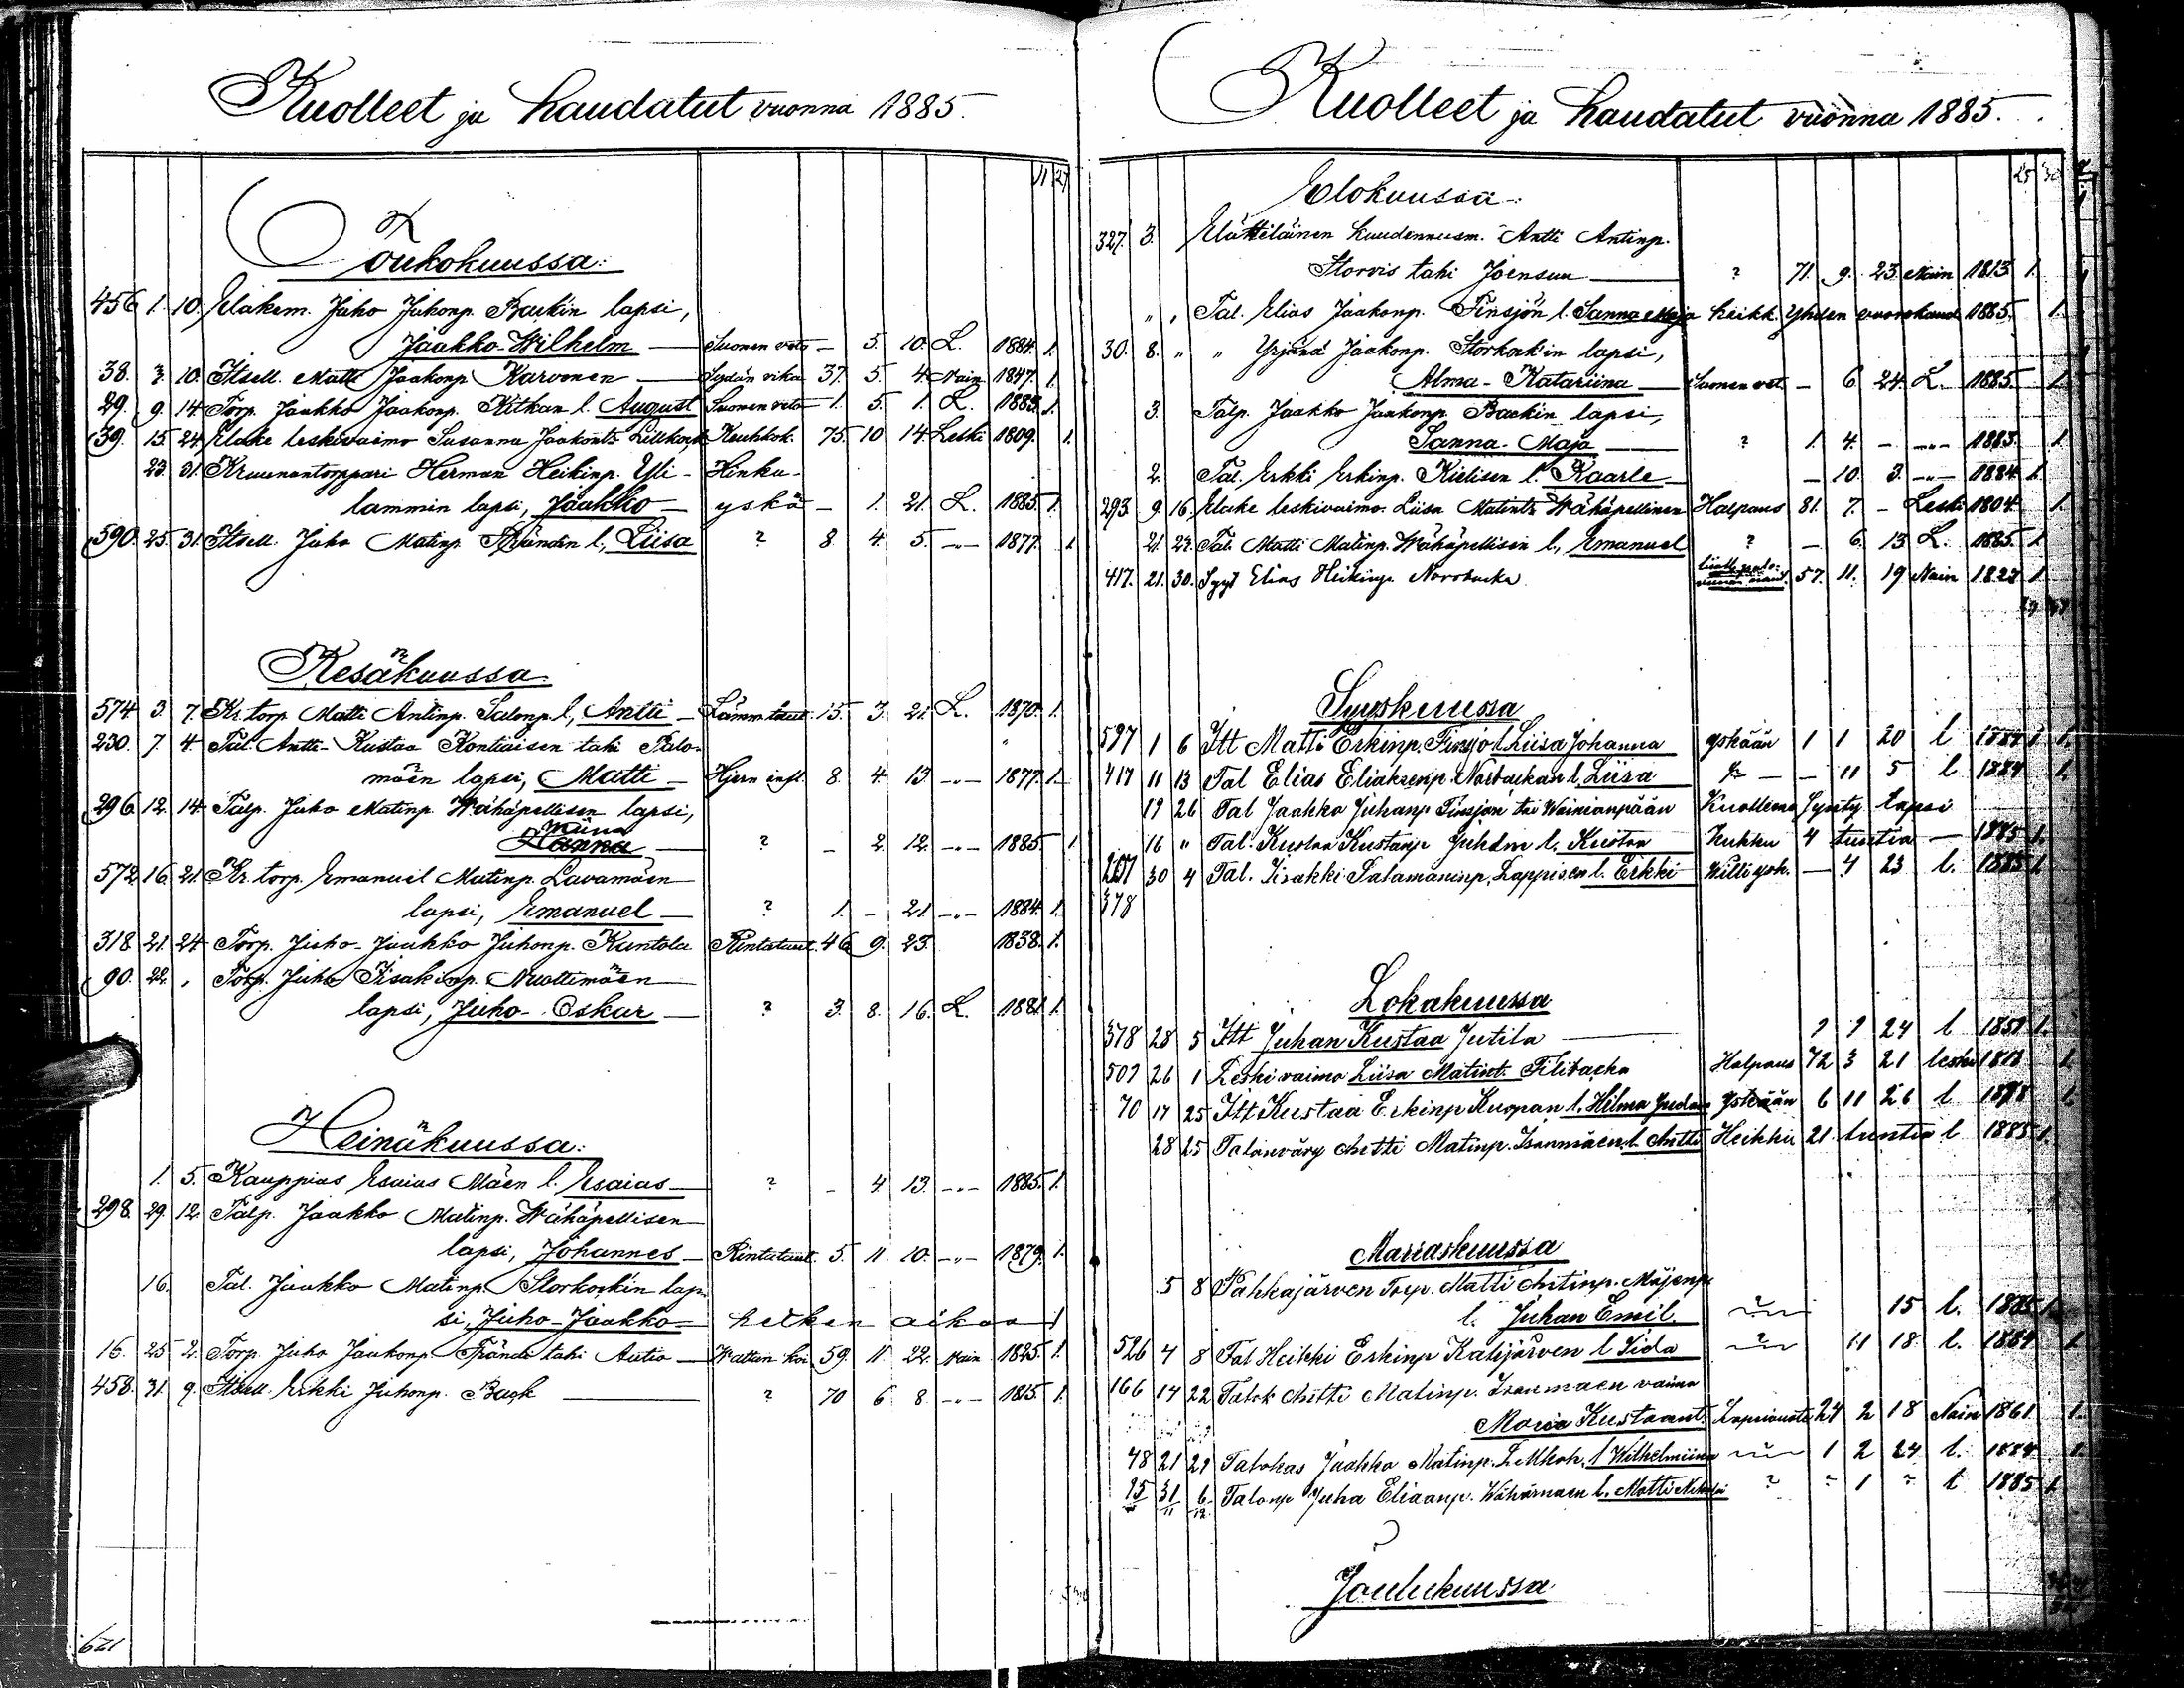 Kuolleet ja haudatut vuonna 1885.
11 27
Toukokuussa:
456 1. 10. Eläkem. Juho Juhonp. Backin lapsi,
Jaakko-Wilhelm — Suonen veto — 5. 10. L. 1884. 1.
38. 3. 10. Itsell. Matti Jaakonp. Karvonen — Sydän vika 37. 5. 4. Nain 1847. 1.
29. 9. 14. Torp. Jaakko Jaakonp. Kitkan l. August Suonen veto 1. 5. 1. L. 1883. 1.
39. 15. 24. Eläke leskivaimo Susanna Jaakontr. Keuhkok. 75. 10 14. Leski 1809. 1.
23. 31. Kruunantorppari Herman Heikinp. Yli- Hinku-
lammin lapsi, Jaakko — yskä — 1. 21. L. 1885. 1.
590. 25. 31. Itsell. Juho Matinp. Brändin l., Liisa ? 8. 4. 5. —„— 1877. 1
Kesäkuussa.
574 3. 7. Kr. torp. Matti Antinp. Salonp. l., Antti — Lämm. taut. 15. 3. 21. L. 1870. 1.
230. 7. 4. Tal. Antti-Kustaa Kontiaisen tahi Palo-
mäen lapsi, Matti — Hjern infl. 8. 4. 13 —„— 1877. 1.
296. 12. 14. Talp. Juho Matinp. Wähäpellisen lapsi,
Miina
Hanna — ? — 2. 12. —„— 1885. 1
572. 16. 21. Kr. torp. Emanuel Matinp. Lavamäen
lapsi, Emanuel — ? 1. — 21 —„— 1884. 1.
318. 21. 24 Torp. Juho-Jaakko Juhonp. Kuntola Rintataut. 46 9. 23. 1838. 1.
90. 22. „ Torp. Juho Iisakinp. Nuottimäen
lapsi, Juho-Oskar — ? 3. 8. 16. L. 1881 1.
Heinäkuussa:
1. 5. Kauppias Esaias Mäen l. Esaias — ? — 4. 13. —„— 1885. 1.
298. 29. 12. Talp. Jaakko Matinp. Wähäpellisen
lapsi, Johannes — Rintataut. 5. 11. 10. —„— 1879. 1.
16. Tal. Jaakko Matinp. Storkockin lap-
si, Juho-Jaakko — hetken aikaa 1
16. 25 2. Torp. Juho Jaakonp. Brändi tahi Autio — 59. 11. 22. Nain 1825. 1.
458. 31. 9. Itsell. Erkki Juhonp. Back — ? 70 6 8. —„— 1815. 1.
621
Kuolleet ja haudatut vuonna 1885.
25 30
Elokuussa.
327. 3. Elätteläinen kuudennusm. Antti Antinp.
Storvis tahi Joensuu — ? 71. 9. 23. Nain 1813. 1.
„ „ Tal. Elias Jaakonp. Finsjön l. Sanna Maja heikk. Yhden vuorokaud 1885. 1.
30. 8. „ „ Yrjänä Jaakonp. Storkock'in lapsi,
Alma-Katariina — Suonen vet. — 6 24. L. 1885. 1.
3. Talp. Jaakko Jaakonp. Backin lapsi,
Sanna-Maja — ? 1. 4. — —„— 1883. 1.
2. Tal. Erkki Erkinp. Kielisen l. Kaarle — — 10. 3. —„— 1884. 1.
293 9 16. Eläke leskivaimo. Liisa Matintr. Wähäpellinen Halpaus 81. 7. — Leski 1804. 1.
21. 22. Tal. Matti Matinp. Wähäpellisen l., Emanuel ? — 6. 13 L. 1885. 1.
417. 21. 30. Syyt. Elias Heikinp. Norrbacka 57. 11. 19 Nain 1827 1.
Syyskuussa
597 1 6 Itt Matti Erkinp. Finsjö l. Liisa Johanna yskään 1 1 20 l 1884 1.
417 11 13 Tal Elias Eliakzenp. Norbackan l. Liisa — — 11 5 l 1884 1.
19 26 Tal Jaakko Juhanp Finsjön tai Wainionpään Kuollena Synty lapsi
16 „ Tal. Kustaa Kustanp Juhdin l. Kustaa 4 tuntia — 1885 1.
207 30 4 Tal. Iisakki Salamaninp. Lappisen l. Erkki — 4 23 l. 1885 1
378
Lokakuussa
378 28 5 Itt Juhan Kustaa Jutila — ? ? 24 l 1851 1.
507 26 1 Leski vaimo Liisa Matint. Filibacka Halpaus 72 3 21 leski 1813 1.
70 17 25 Itt Kustaa Erkinp Kuopan l. Hilma Yskään 6 11 26 l 1878 1.
28 25 Talonväry Antti Matinp. Isanmäen l. Antti Heikkü 21 tuntia l 1885 1.
Marraskuussa
5 8 Pahkajärven Torp. Matti Antinp. Mäjenp
l. Juhan Emil 15 l. 1885 1.
526 4 8 Tal Heikki Erkinp Katijärven l Iida 11 18 l. 1884 1.
166 14 22 Talok Antti Matinp. Isanmaen vaimo
Maria Kustaant. Lapsivuote 24 2 18 Nain 1861 1.
48 21 29 Talokas Jaakko Matinp. l Wilhelmiina 1 2 24 l. 1884 1.
15 31/11 6/12. Talonp Juha Eliaanp. Wähämaen l. Matti ? 1 ? l 1885 1.
Joulukuussa